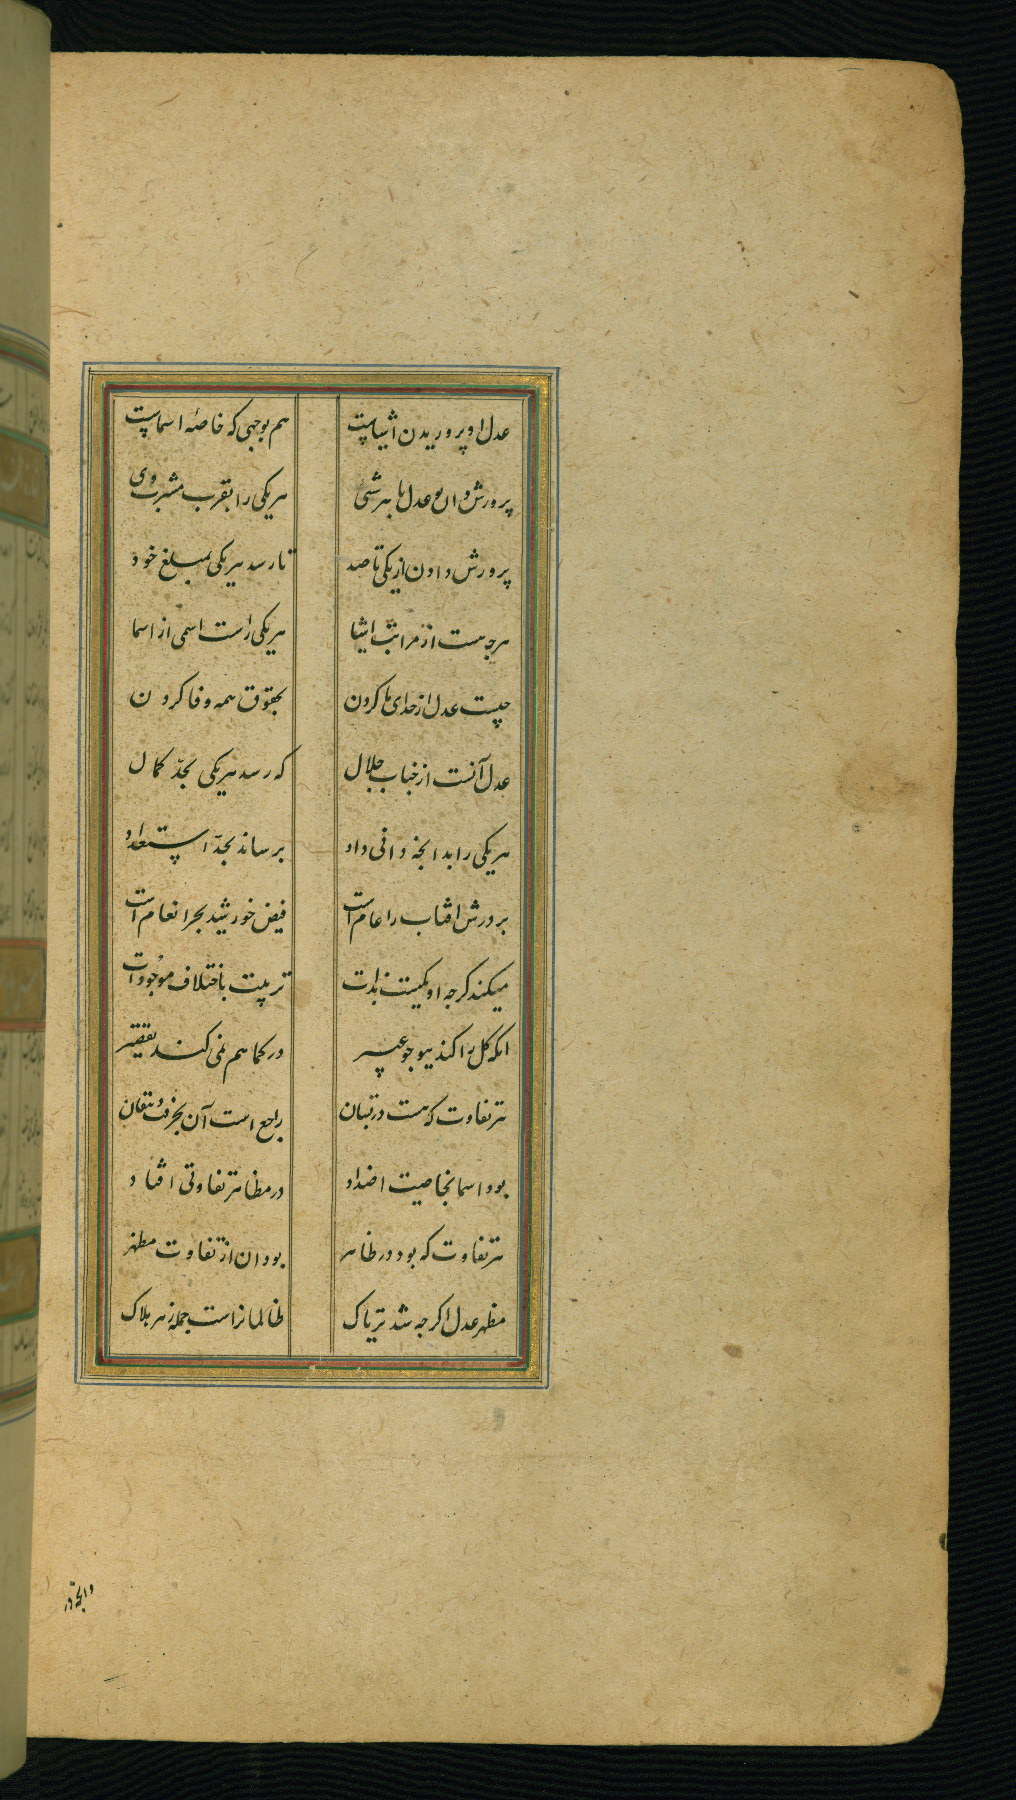 عدل او پروریدن اشیاست هم بوجهی که خاصهٔ اسماست
پرورش دان تو عدل با هر شئ هر یکی را بقرب مشرب وی
پرورش دادن از یکی تا صد تا رسد هر یکی بمبلغ خود
هرچه هست از مراتب اشیا هر یکی راست اسمی از اسما
چیست عدل از خدای ما کردن بحقوق همه وفا کردن
عدل آنست از جناب جلال که رسد هر یکی بحدّ کمال
هر یکی را بدانچه وافی داد برساند بحدّ استعداد
پرورش افتاب را عام است فیض خورشید بحر انعام است
میکند کرچه او یکیست بذات تربیت باختلاف موجودات
انکه کل را کند ببو چو عبیر در کیا هم نمی کند تقصیر
هر تفاوت که هست در تبیان راجع است آن بحرفت و نقصان
بود اسما بخاصیت اضداد در مظاهر تفاوتی افتاد
هر تفاوت که بود در ظاهر بود ان از تفاوت مظهر
مظهر عدل اکرچه شد تریاک ظالمانراست جمله زهر هلاک